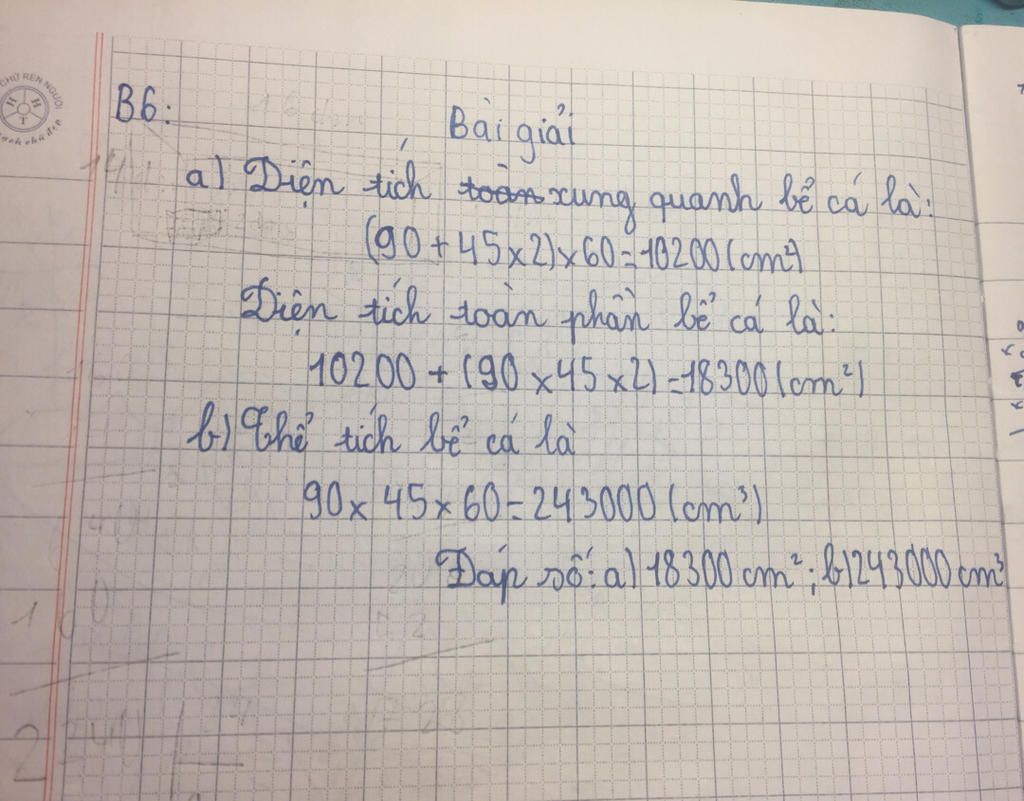 CHỮ RÈN NGƯỜI
H H
T
B6:
Bài giải
a) Diện tích toàn xung quanh bể cá là:
(90 + 45 x 2) x 60 = 10200 (cm²)
Diện tích toàn phần bể cá là:
10200 + (90 x 45 x 2) = 18300 (cm²)
b) Thể tích bể cá là
90 x 45 x 60 = 243000 (cm³)
Đáp số: a) 18300 cm²; b) 243000 cm³